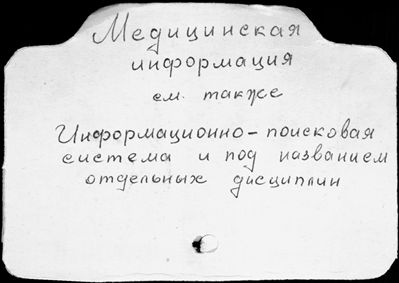 Медицинская
информация
см. также
Информационно-поисковая
система и под названием
отдельных дисциплин